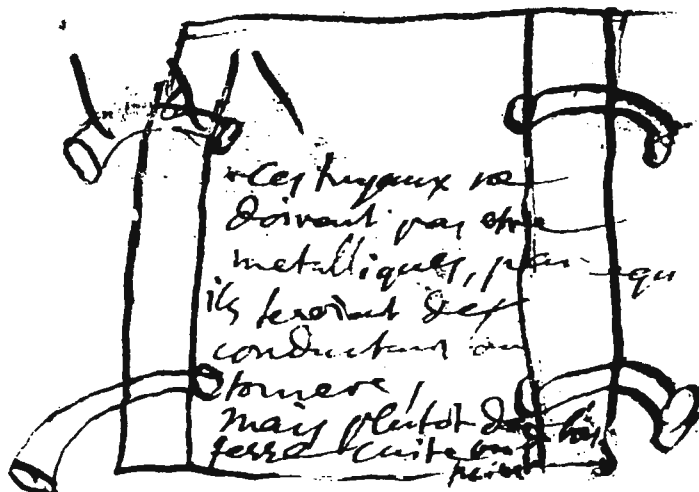 Ces tuyaux ne
doivent pas etre
metalliques, parcequ
ils seroient des
conducteurs au
tonnere,
mais plutot de bois
terre cuite ou